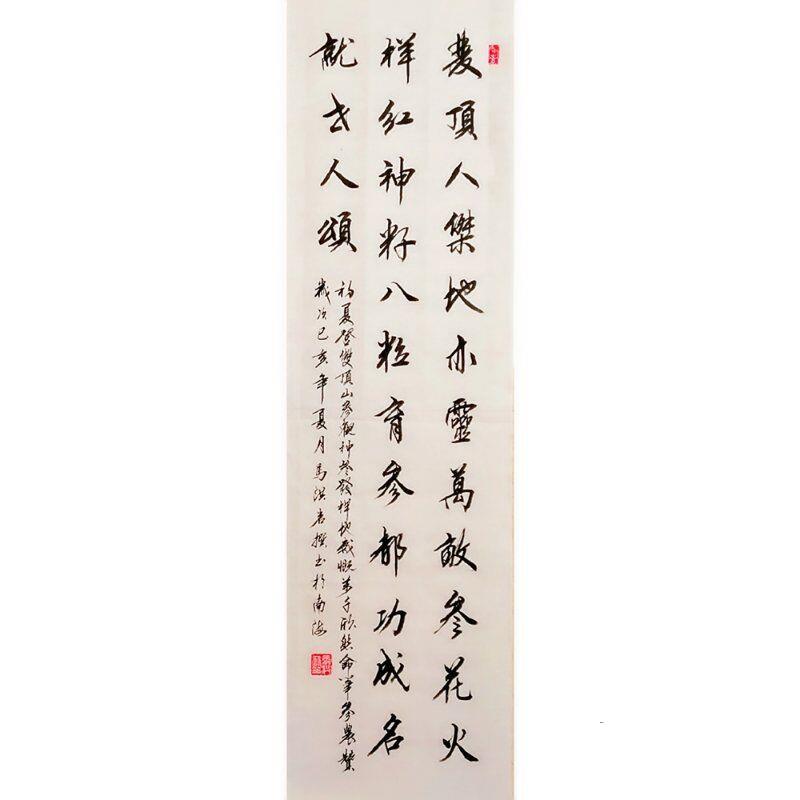 雙頂人傑地亦靈萬畝參花火
样紅神籽八粒育參都功成名
就世人頌
初夏登雙頂山參觀神參發祥地感慨萬千欣然命筆參農贊
歲次己亥年夏月馬洪撰书於南海